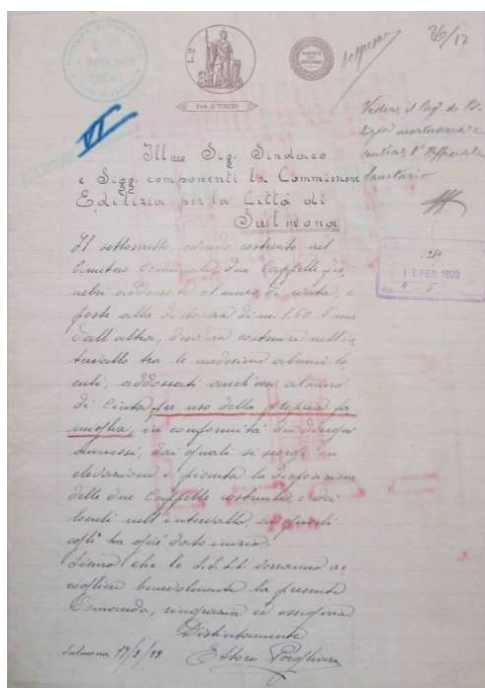 L. 2
sospeso
Illmo Sig. Sindaco
e Sigg. componenti la Commissione
Edilizia per la Città di
Sulmona
Il sottoscritto, avendo costruito nel
Cimitero Comunale, due Cappelle fu-
nebri addossate al muro di cinta, e
poste alla distanza di m. 1.60 l'una
dall'altra, desidera costruire nell'in
tervallo tra le medesime alcuni lo
culi, addossati anch'essi al muro
di Cinta per uso della propria fa
miglia, in conformità dei disegni
annessi, dai quali si scorge in
elevazione e pianta la disposizione
delle due Cappelle costruite e dei
loculi nell'intervallo, ai quali
egli ha già dato inizio.
Sicuro che le LL. SS. vorranno ac
cogliere benevolmente la presente
domanda, ringrazia ed ossequia
Distintamente
Sulmona 17/2/23
Ettore
17 FEB. 1923
VI